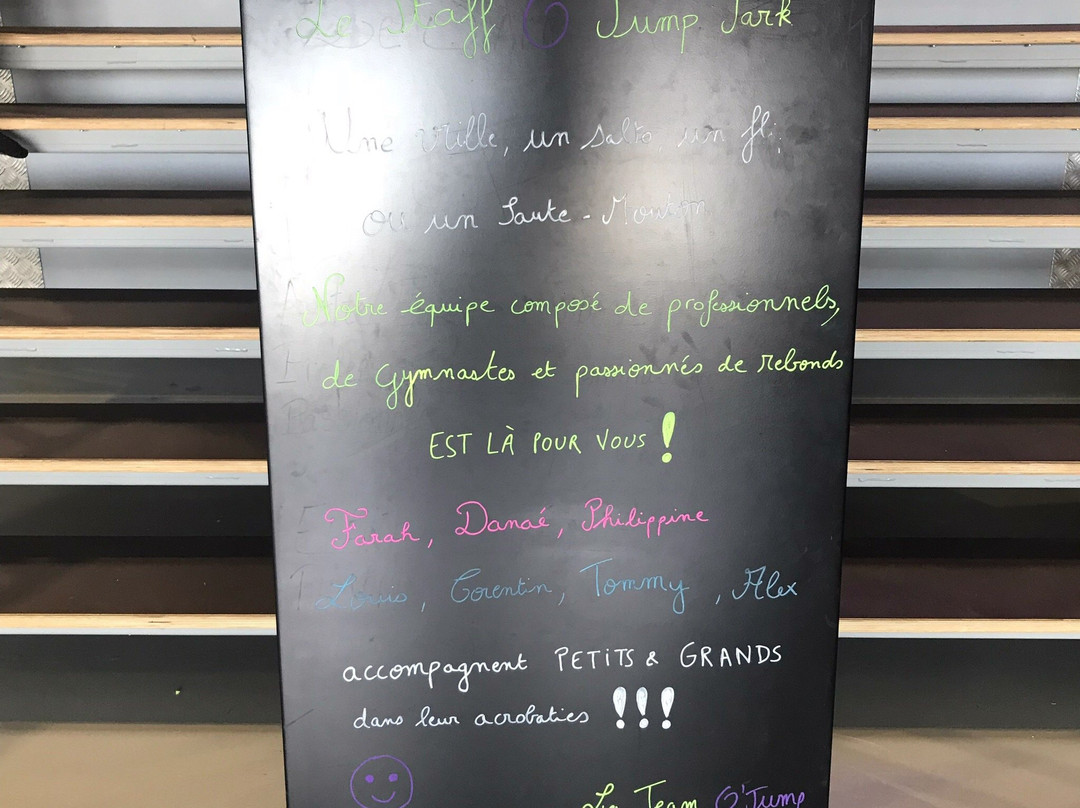 Le Staff O Jump Park
Une vrille, un salto, un
ou un Saute - Mouton
Notre équipe composé de professionnels,
de Gymnastes et passionnés de rebonds
EST LÀ POUR VOUS !
Farah, Danaé, Philippine
Louis, Corentin, Tommy, Alex
accompagnent PETITS & GRANDS
dans leur acrobaties !!!
La Team O'Jump